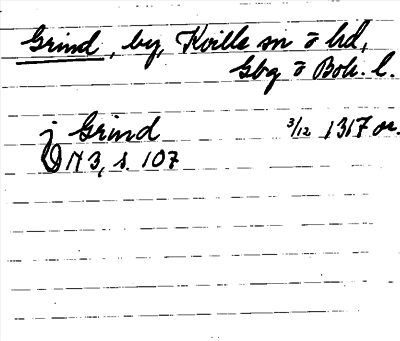 Grind, by, Kville sn o hd,
Gbg o Boh. l.
j Grind 3/12 1317 or.
DN 3, s. 107